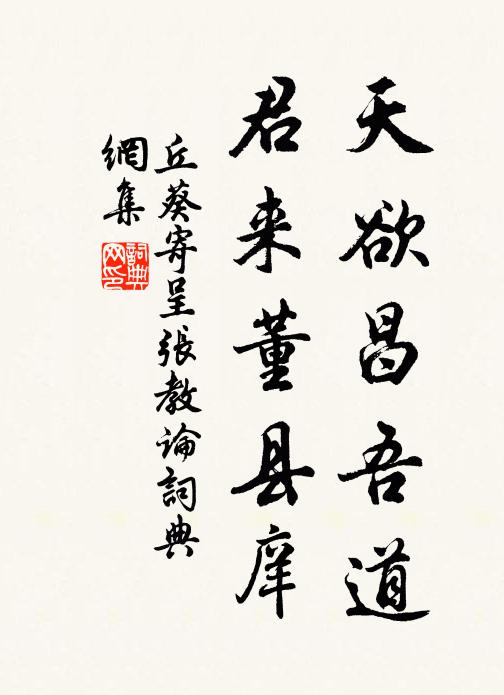 天欲昌吾道
君来董县庠
丘葵寄呈張教諭詞典
網集
詞典网印